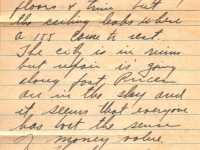 floors & trim but
the ceiling leaks where
a 155 came to rest.
The city is in ruins
but repair is going
along fast Prices
are in the sky and
it seems that everyone
has lost the sense
of money value.